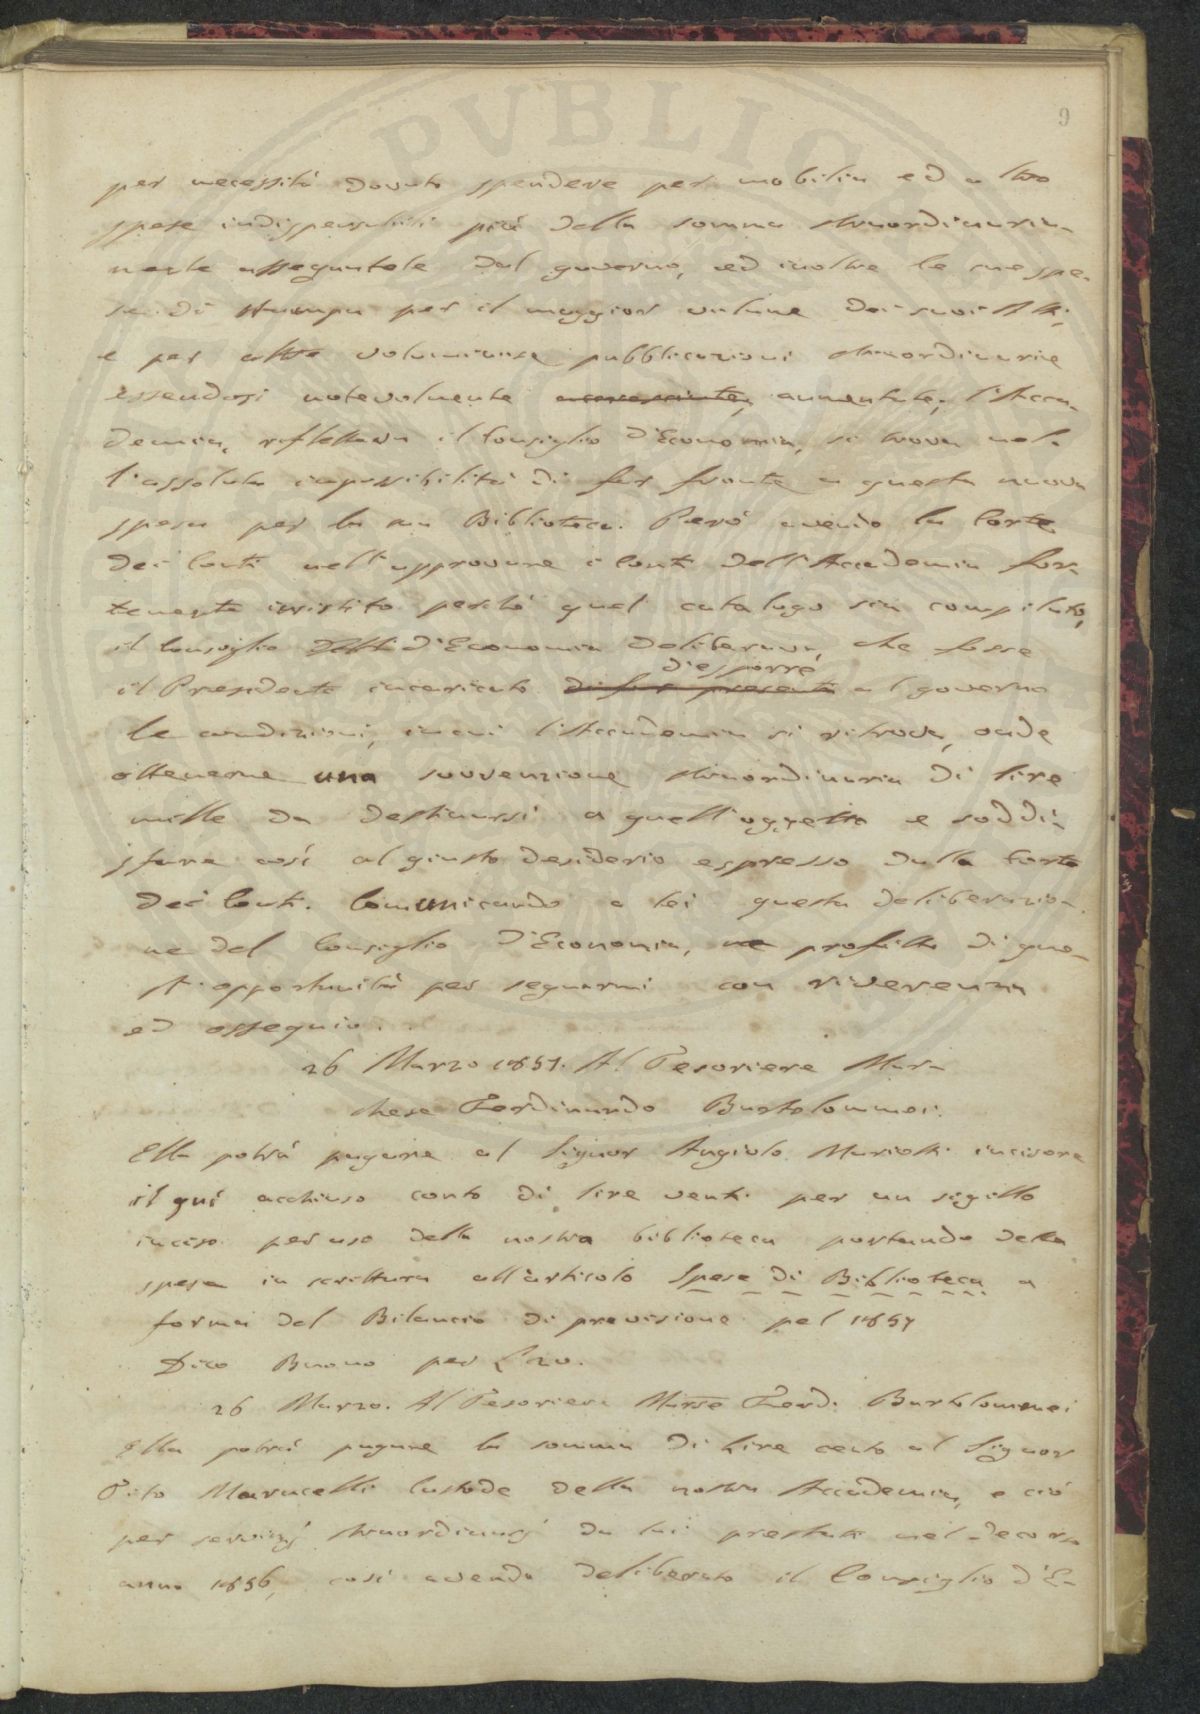 PVBLICA
9
per necessità dovuto spendere per mobilia ed altro
spese indispensabili più della somma straordinaria-
mente assegnatole dal governo, ed inoltre le sue spe-
se di stampa per il maggior volume dei suoi Atti,
e per altre voluminose pubblicazioni straordinarie
essendosi notevolmente accresciute, aumentate, l'Acca-
demia, rifletteva il Consiglio d'Economia, si trova nel-
l'assoluta impossibilità di far fronte a questa nuova
spesa per la sua Biblioteca. Però avendo la Corte
dei Conti nell'approvare i Conti dell'Accademia for-
temente insistito perché quel catalogo sia compilato,
il Consiglio d'Economia deliberava, che fosse
d'esporre
il Presidente incaricato di far presente al governo
le condizioni, in cui l'Accademia si ritrova, onde
ottenerne una sovvenzione straordinaria di lire
mille da destinarsi a quell'oggetto e soddi-
sfare così al giusto desiderio espresso dalla Corte
dei Conti. Comunicando a lei questa deliberazio-
ne del Consiglio d'Economia, ne profitto di que-
st'opportunità per segnarmi con riverenza
ed ossequio.
26 Marzo 1857. Al Tesoriere Mar-
chese Ferdinando Bartolommei.
Ella potrà pagare al Signor Angiolo Mariotti incisore
il qui acchiuso conto di lire venti per un sigillo
inciso per uso della nostra biblioteca portando detta
spesa in scrittura all'articolo Spese di Biblioteca a
forma del Bilancio di previsione pel 1857
Dico Buono per £ 20.
26 Marzo. Al Tesoriere Marse Ferd. Bartolommei
Ella potrà pagare la somma di Lire cento al Signor
Tito Marucelli Custode della nostra Accademia, e ciò
per servizj straordinarj da lui prestati nel decorso
anno 1856, così avendo deliberato il Consiglio d'E-